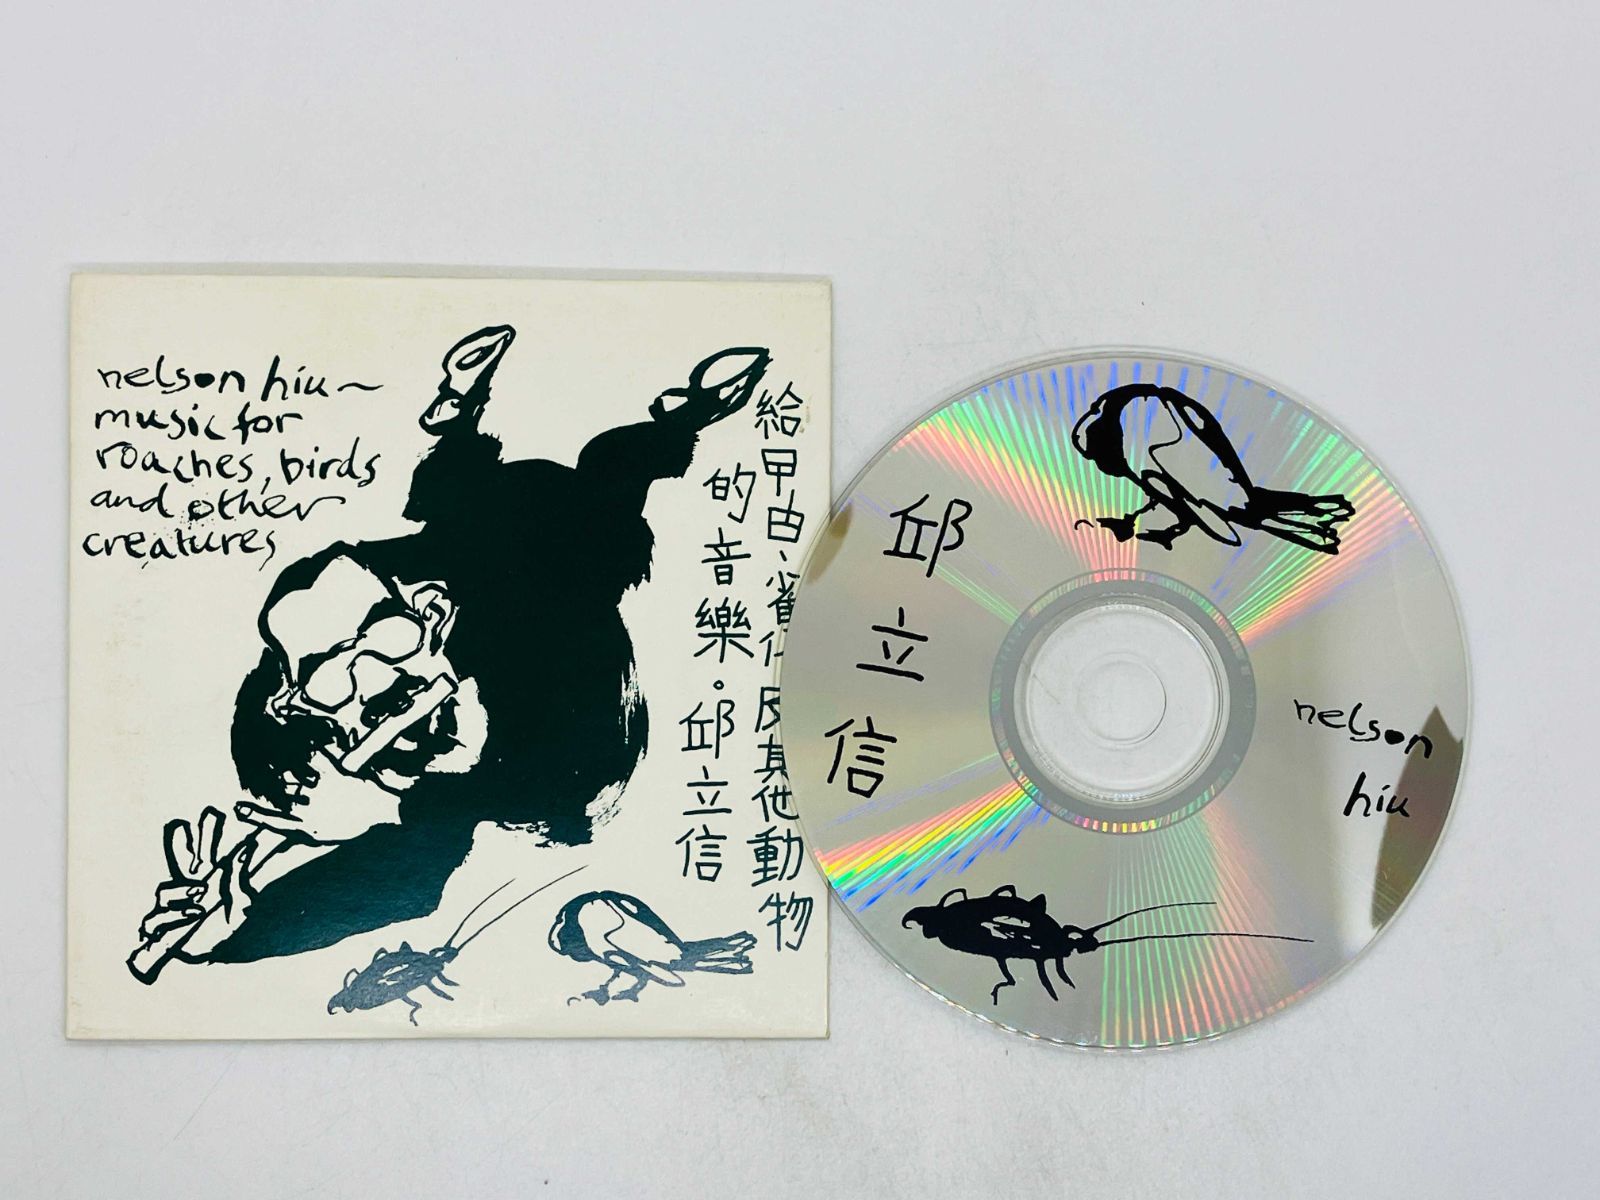 nelson hiu~
music for
roaches, birds
and other
creatures
給曱甴、雀仔及其他動物
的音樂。邱立信
邱立信
nelson
hiu